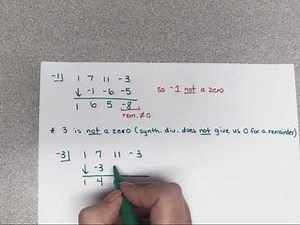 -1| 1 7 11 -3
↓ -1 -6 -5 so -1 not a zero
1 6 5 -8
rem. ≠0
* 3 is not a zero (synth. div. does not give us 0 for a remainder)
-3| 1 7 11 -3
↓ -3
1 4